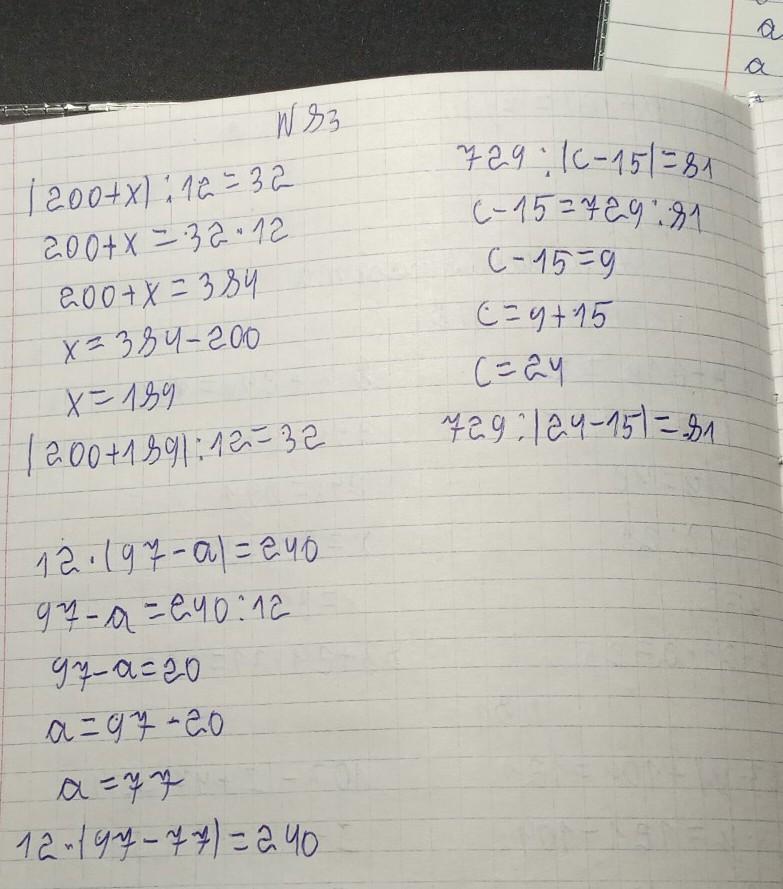 N 83
(200+x):12=32
200+x=32·12
200+x=384
x=384-200
x=184
(200+184):12=32
12·(97-a)=240
97-a=240:12
97-a=20
a=97-20
a=77
12·(97-77)=240
729:(c-15)=81
c-15=729:81
c-15=9
c=9+15
c=24
729:(24-15)=81
a
a